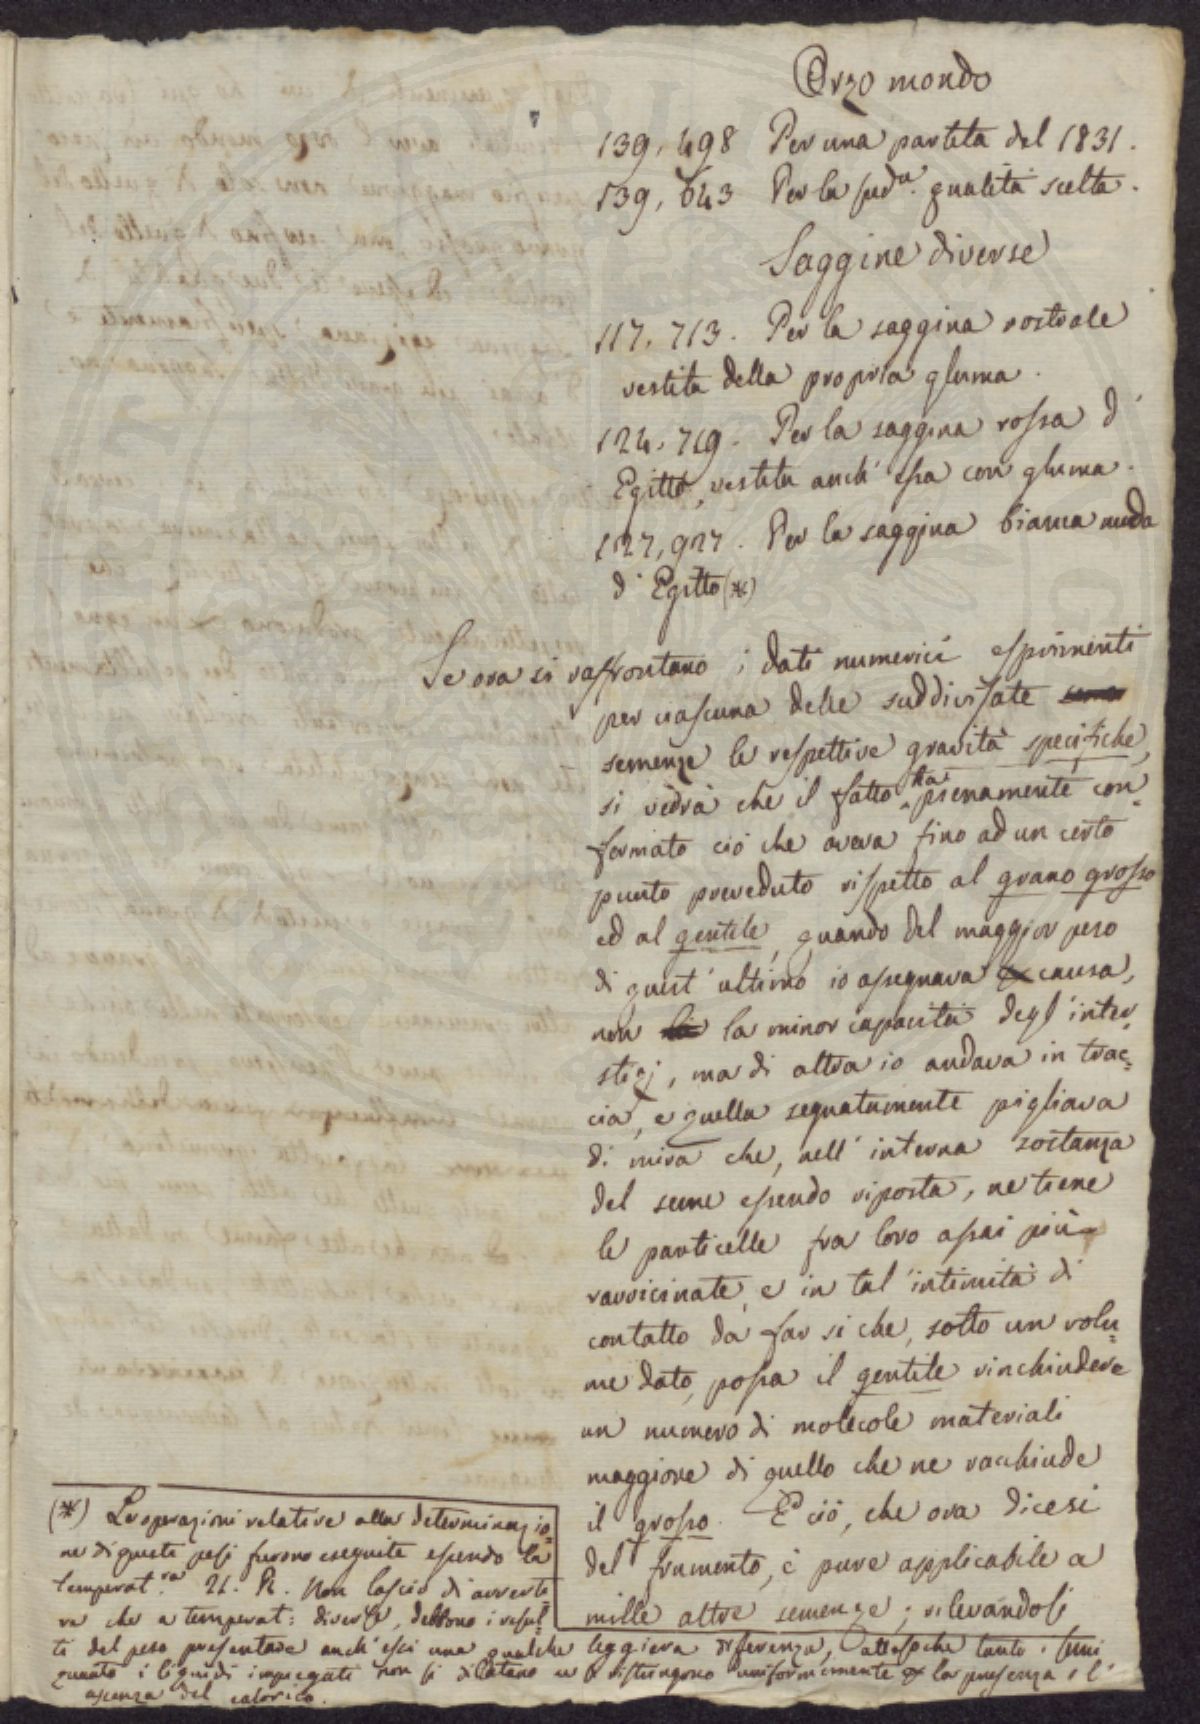 Orzo mondo
139,498 Per una partita del 1831.
139,643 Per la sudᵃ. qualità scelta.
Saggine diverse
117,713. Per la saggina nostrale
vestita della propria gluma.
124,719. Per la saggina rossa d'
Egitto, vestita anch' essa con gluma.
127,927. Per la saggina bianca nuda
d'Egitto (*)
Se ora si raffrontano i dati numerici esprimenti
per ciascuna delle suddivisate
semenze le respettive gravità specifiche,
si vedrà che il fatto ha pienamente con=
fermato ciò che aveva fino ad un certo
punto preveduto rispetto al grano grosso
ed al gentile, quando del maggior peso
di quest' ultimo io assegnava causa,
non la minor capacità degl' inter=
stizj, ma di altra io andava in trac=
cia, e quella segnatamente pigliava
di mira che, nell' interna sostanza
del seme essendo riposta, ne tiene
le particelle fra loro assai più
ravvicinate, e in tal' intimità di
contatto da far si che, sotto un volu=
me dato, possa il gentile rinchiudere
un numero di molecole materiali
maggiore di quello che ne racchiude
il grosso. E ciò, che ora dicesi
del frumento, è pure applicabile a
mille altre semenze; rilevandosi
(*) Le operazioni relative alla determinazio=
ne di questi pesi furono eseguite essendo la
temperat.ʳᵃ 21. R. Non lascio di avverti=
re che a temperat: diverse, debbono i resul=
ti del peso presentare anch' essi una qualche leggiera differenza, attesoche tanto i semi
quanto i liquidi impiegati non si dilatano e ristringono uniformemente la presenza o l'
assenza del calorico.